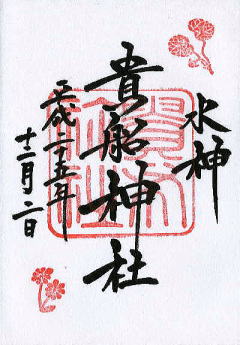 水神
貴船神社
平成二十五年
十二月二日